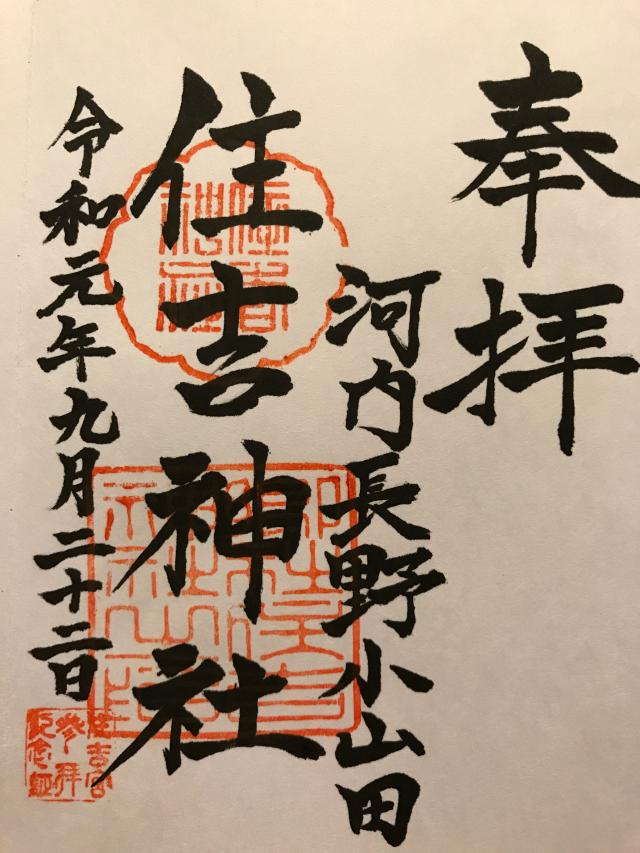 奉拝
河内長野小山田
住吉神社
令和元年九月二十二日
住吉宮
参拝
記念証